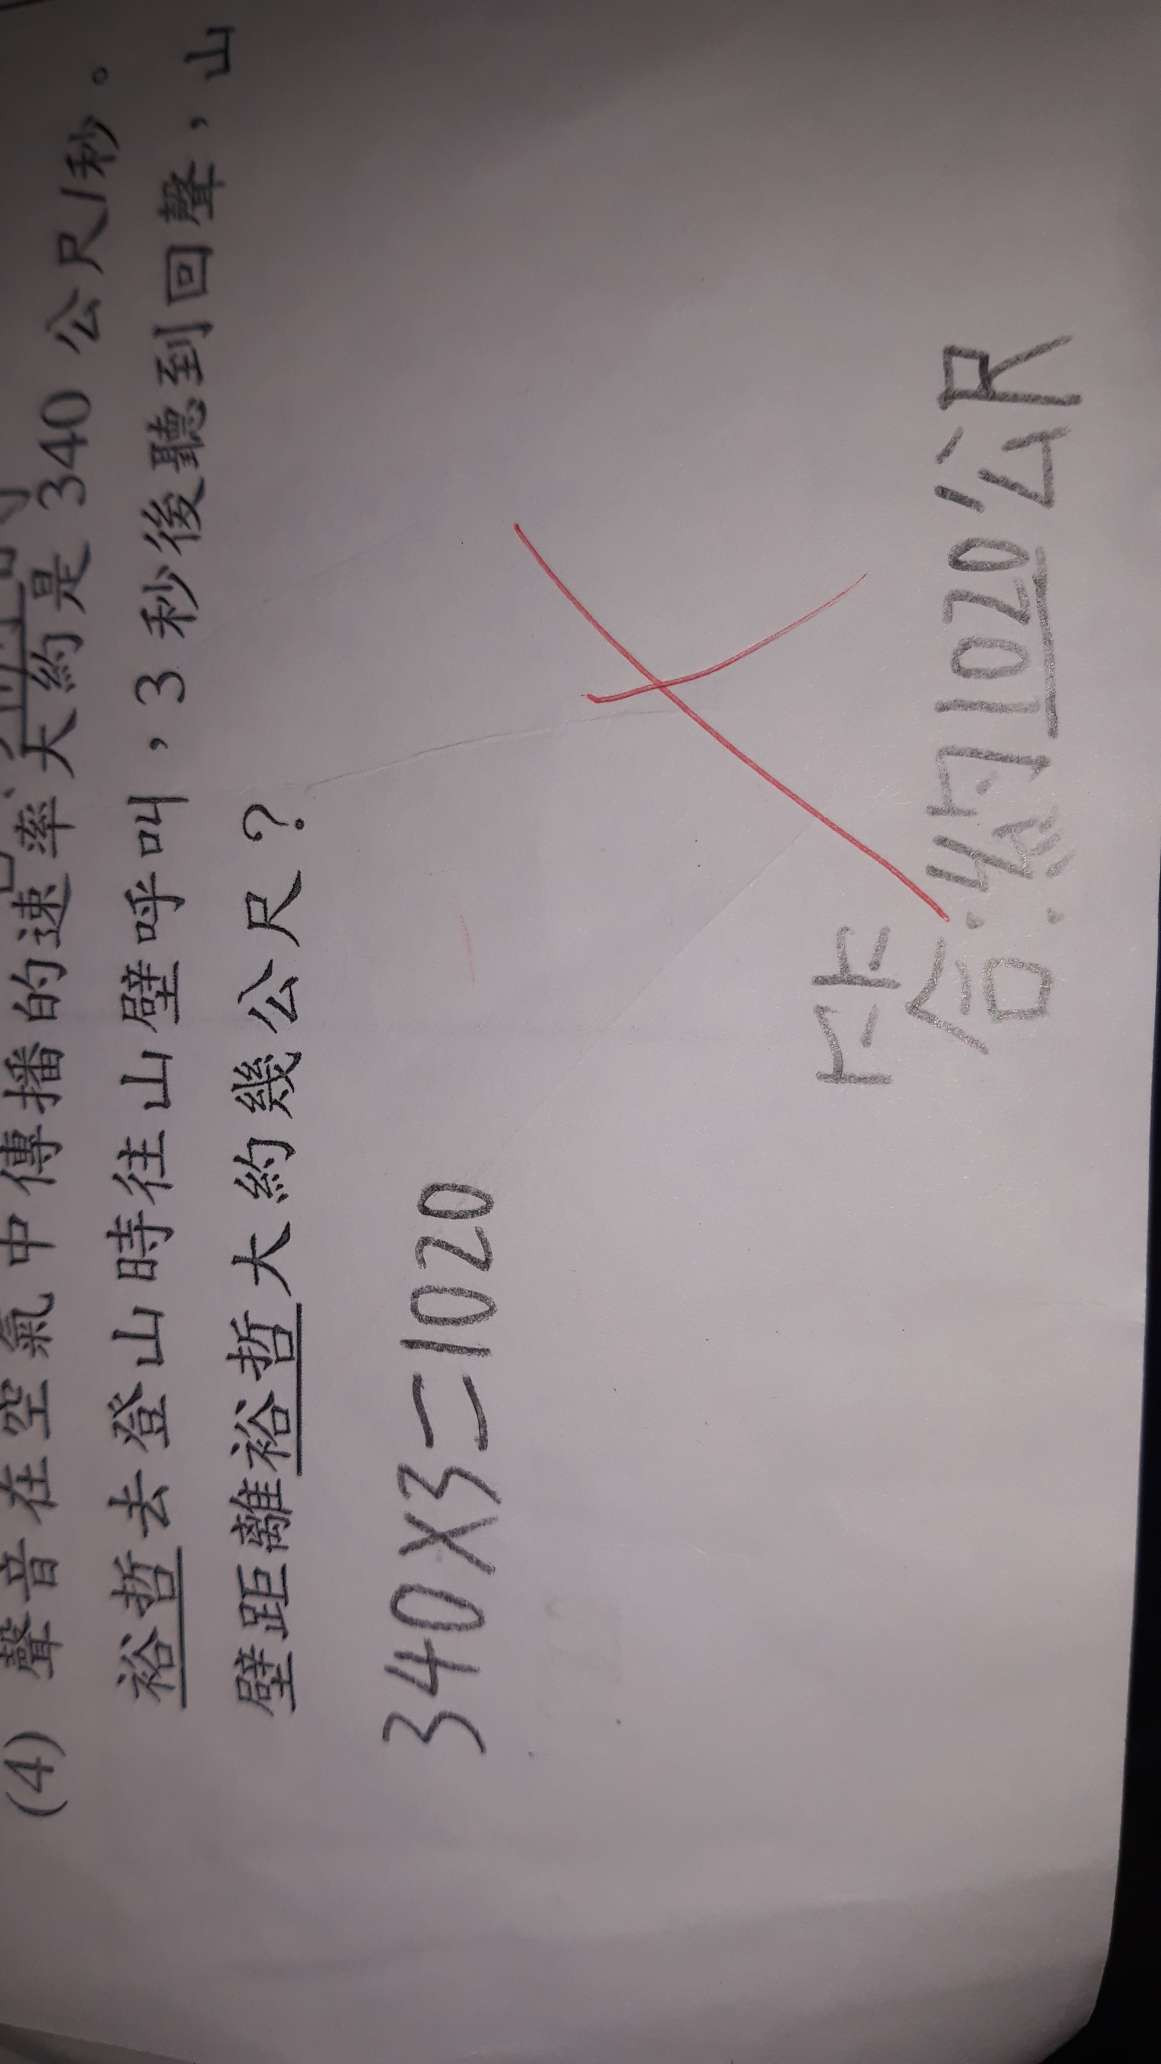 (4) 聲音在空氣中傳播的速率大約是 340 公尺/秒。
裕哲去登山時往山壁呼叫，3 秒後聽到回聲，山
壁距離裕哲大約幾公尺？
340×3=1020
答:約1020公尺